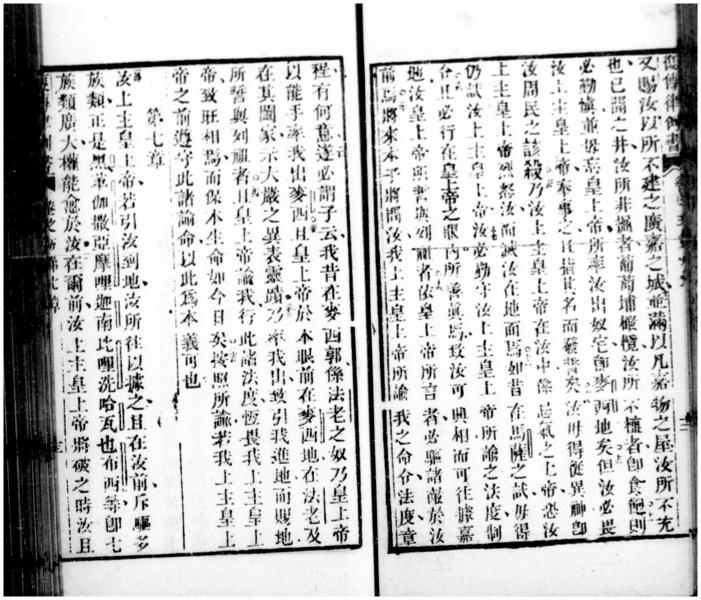 復傳律例書
又賜汝以所不建之廣嘉之城並滿以凡嘉物之屋汝所不充
也已開之井汝所非掘者葡萄埔橄欖汝所不植者卽食飽則
必勤慎並毋忘皇上帝所率汝出奴宅卽麥西地矣但汝必畏
汝上主皇上帝奉事之且指其名而發誓矣汝毋得從異神卽
汝周民之該殺乃汝上主皇上帝在汝中係忌氣之上帝恐汝
上主皇上帝烈怒汝而滅汝在地面焉如昔在馬薩之試毋得
仍試汝上主皇上帝汝必勤守汝上主皇上帝所諭之法度制
令且必行在皇上帝之眼內所善眞焉致汝可興相而可往據嘉
地汝皇上帝所誓與列祖者依皇上帝所言者必驅諸敵於汝
前焉將來本子將問汝我上主皇上帝所諭我之命令法度章
程有何意遂必謂子云我昔在麥西郭係法老之奴乃皇上帝
以能手率我出麥西且皇上帝於本眼前在麥西地在法老及
在其闔家示大嚴之異表靈蹟乃率我出致引我進地而賜地
所誓與列祖者且皇上帝諭我行此諸法度恆畏我上主皇上
帝致旺相焉而保本生命如今日矣按照所諭若我上主皇上
帝之前遵守此諸諭命以此爲本義可也
第七章
汝上主皇上帝若引汝到地汝所往以據之且在汝前斥驅多
族類正是黑革伽撒亞摩哩迦南比哩洗哈瓦也布西等卽七
族類廣大權能愈於汝在爾前汝上主皇上帝將破之時汝且